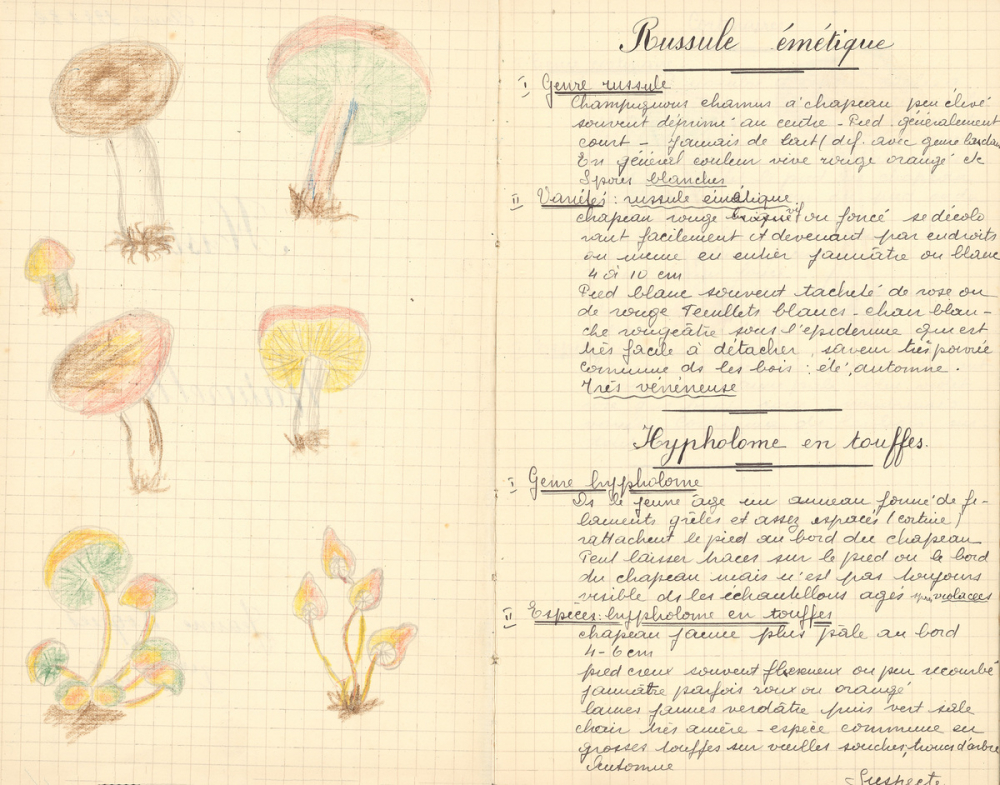 Russule émétique
I Genre russule
Champignons charnus à chapeau peu élevé
souvent déprimé au centre - Pied généralement
court - Jamais de lait (dif. avec genre
En général couleur vive rouge orangé etc
Spores blanches
II Variétés : russule émétique
chapeau rouge vif ou foncé se décolo
rant facilement et devenant par endroits
ou même en entier jaunâtre ou blanc
4 à 10 cm
Pied blanc souvent tacheté de rose ou
de rouge Feuillets blancs - chair blan-
che rougeâtre sous l'épiderme qui est
très facile à détacher, saveur très poivrée
commune ds les bois : été, automne.
Très vénéneuse
Hypholome en touffes.
I Genre hypholome
Ds le jeune âge un anneau formé de fi-
laments grêles et assez espacés (cortine)
rattachent le pied au bord du chapeau
Peut laisser traces sur le pied ou le bord
du chapeau mais n'est pas toujours
visible ds les échantillons agés violacées
II Espèces : hypholome en touffes
chapeau jaune plus pâle au bord
4-6 cm
pied creux souvent flexueux ou peu recourbé
jaunâtre parfois roux ou orangé
lames jaunes verdâtre puis vert sale
chair très amère - espèce commune en
grosses touffes sur vieilles souches, troncs d'arbre
Automne
Suspecte